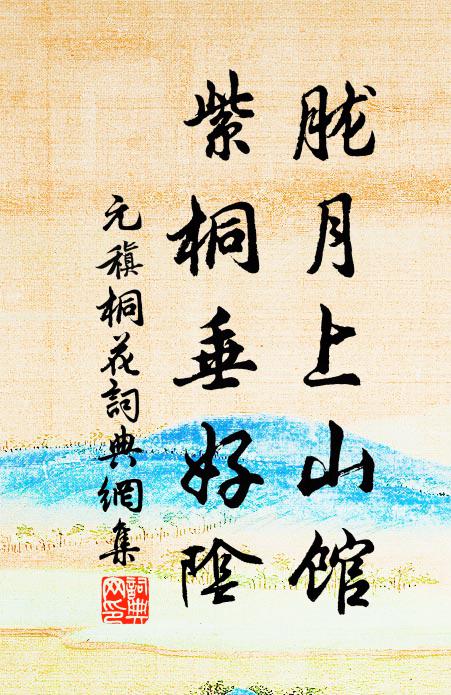 胧月上山館
紫桐垂好陰
元稹桐花詞典網集
詞典
网印